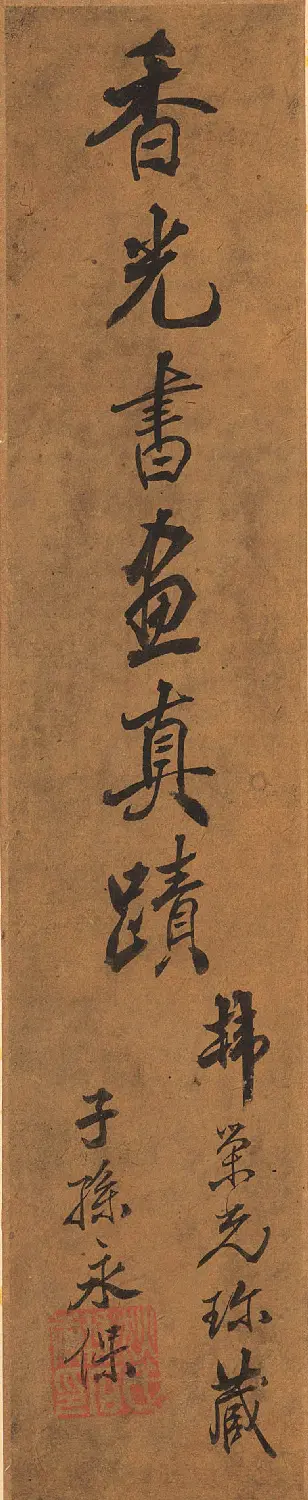 香光書畫真蹟
韓榮光珍藏
子孫永保